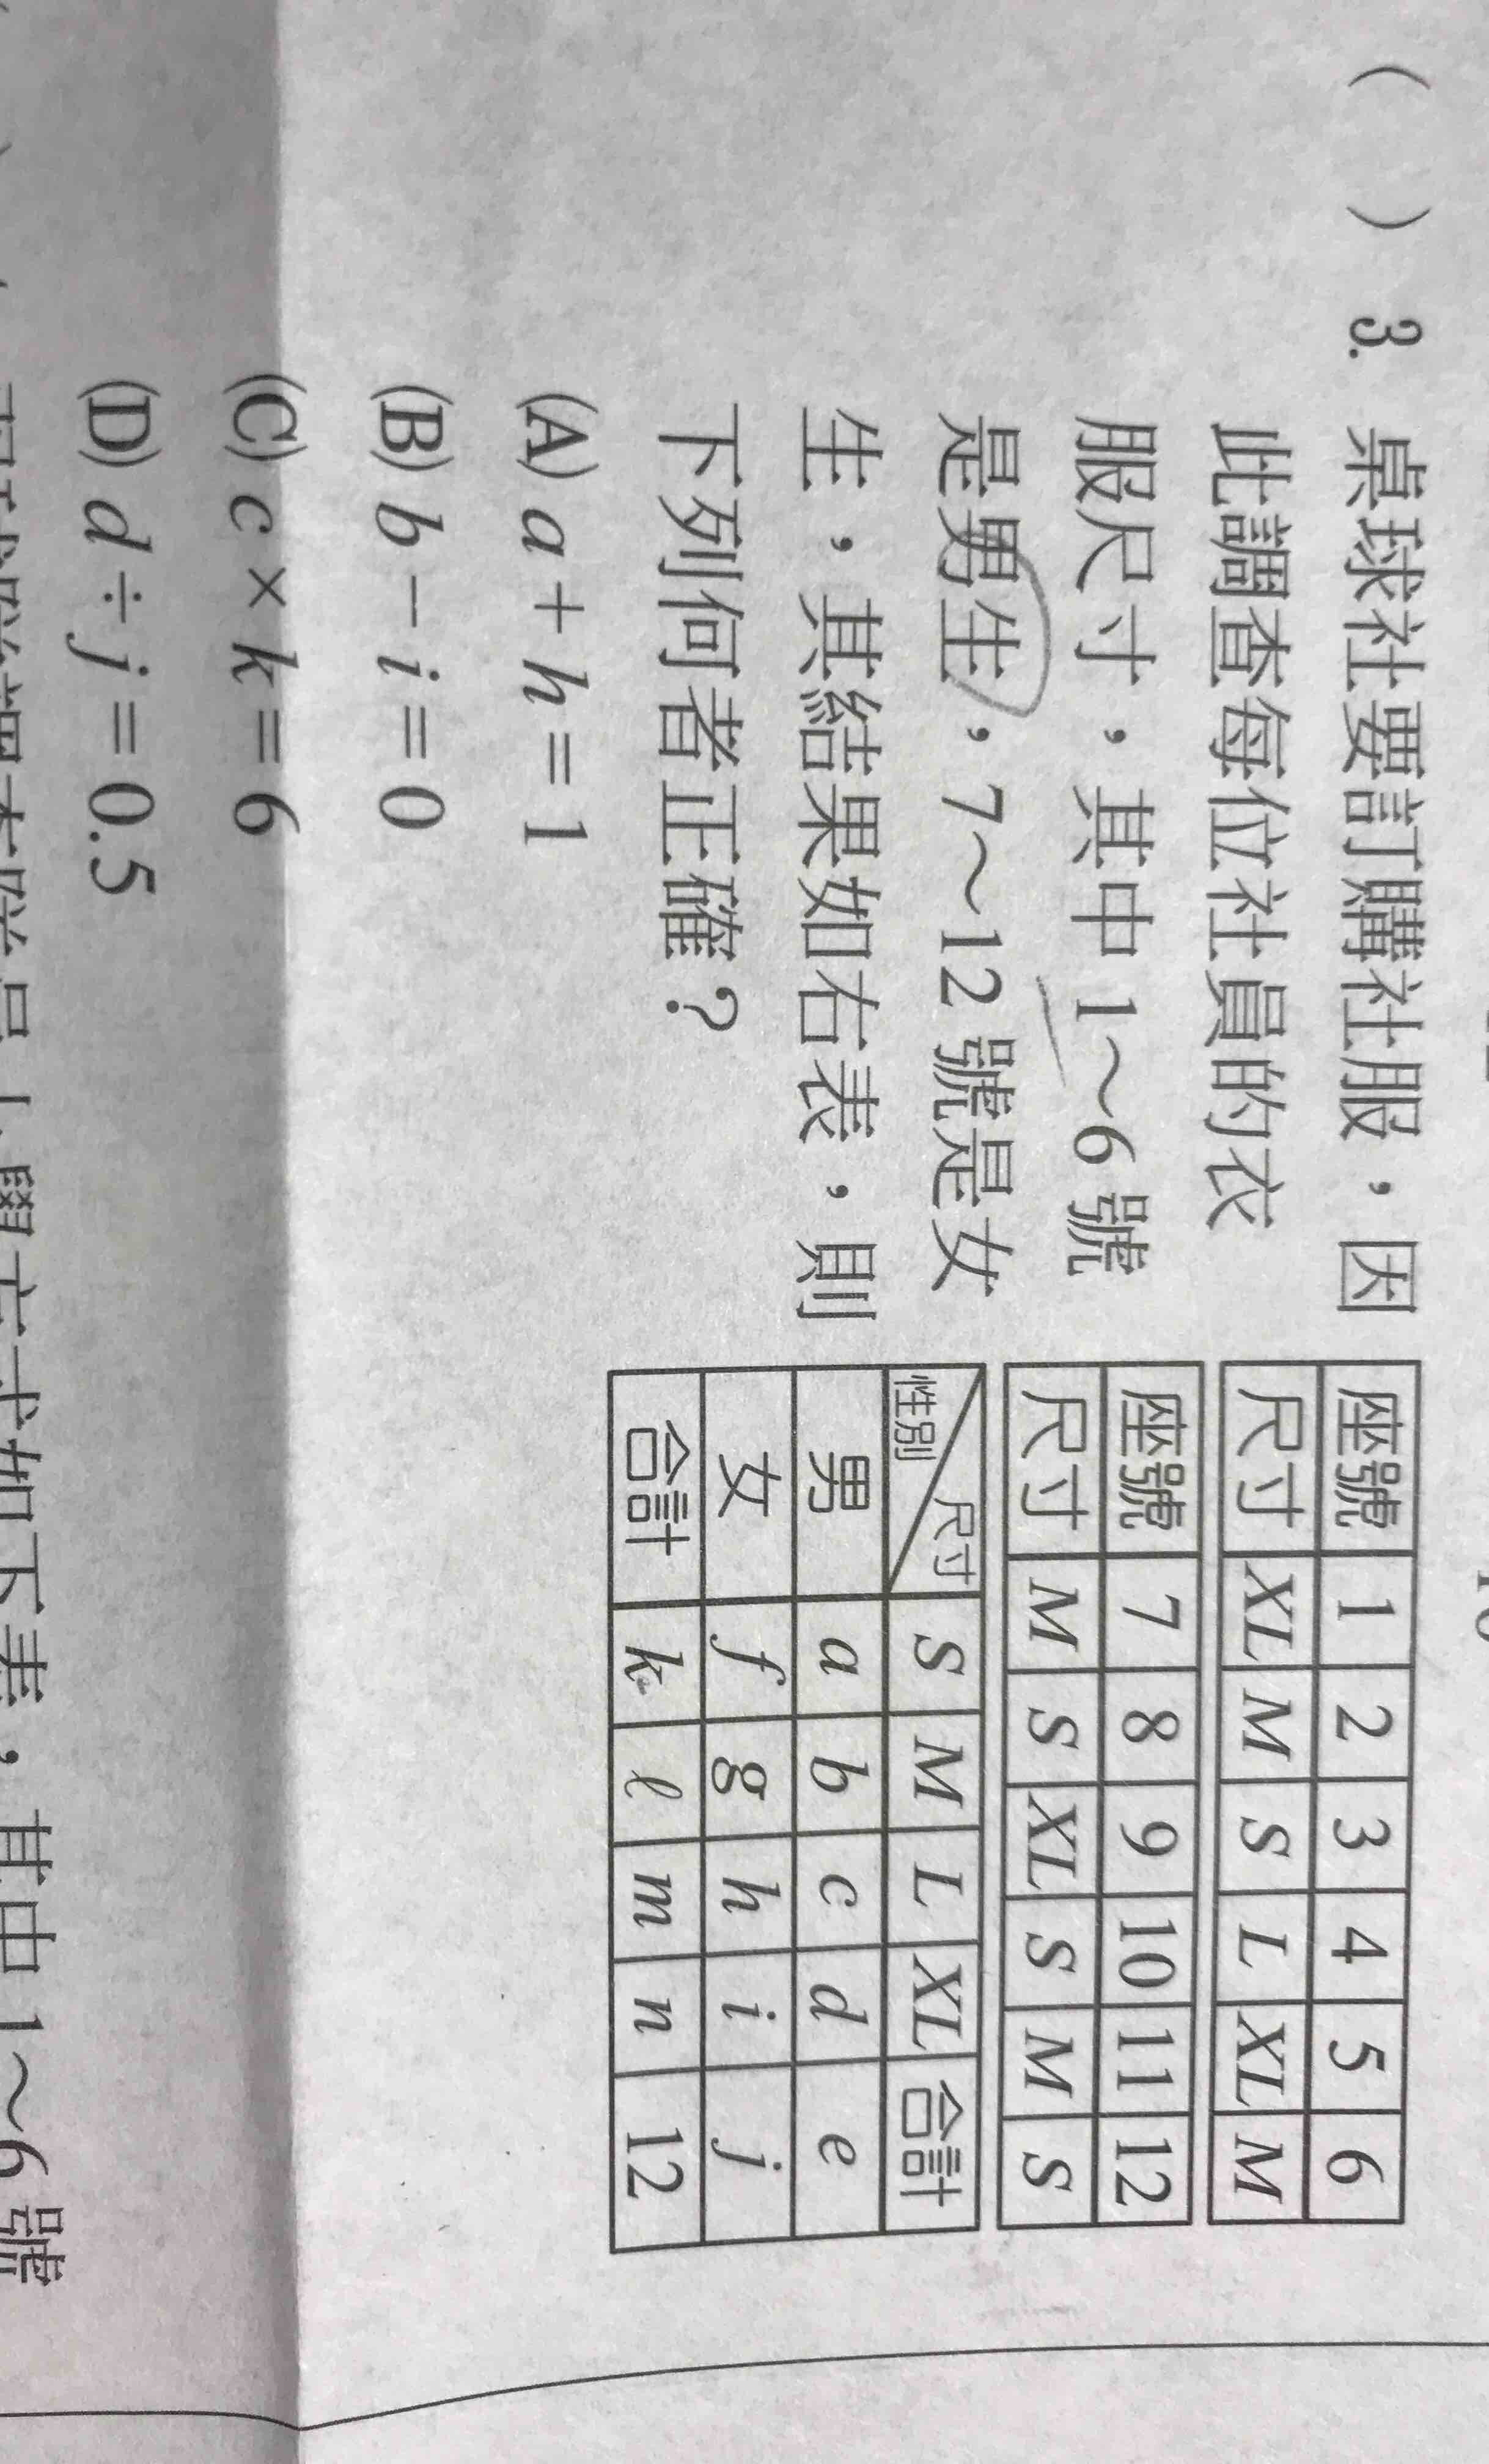 ( ) 3. 桌球社要訂購社服，因
此調查每位社員的衣
服尺寸，其中 1～6 號
是男生，7～12 號是女
生，其結果如右表，則
下列何者正確？
(A) a + h = 1
(B) b − i = 0
(C) c × k = 6
(D) d ÷ j = 0.5
座號 1 2 3 4 5 6
尺寸 XL M S L XL M
座號 7 8 9 10 11 12
尺寸 M S XL S M S
性別 尺寸 S M L XL 合計
男 a b c d e
女 f g h i j
合計 k ℓ m n 12
，其中 1～6 號